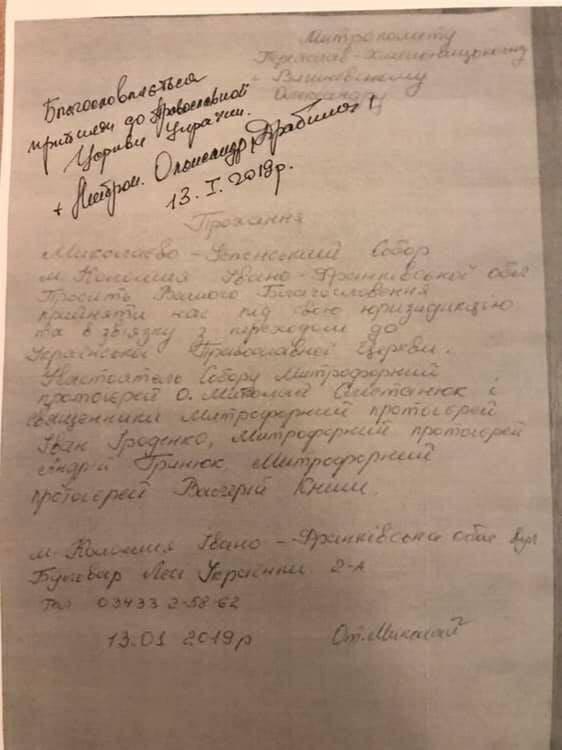 Митрополиту
Переяслав-Хмельницькому
+ Вишневському
Олександру
Благословляється
прийняти до Православної
Церкви України.
+ Митроп. Олександр (Драбинко)
13. I. 2019р.
Прохання
Миколаєво-Успенський Собор
м. Коломия Івано-Франківської обл
Просить Вашого Благословення
прийняти нас під свою юрисдикцію
та в звязку з переходом до
Української Православної Церкви.
Настоятель Собору Митрофорний
протоієрей О. Миколай Сметанюк і
священники Митрофорний протоієрей
Іван Гроденко, Митрофорний протоієрей
Андрій Гринюк, Митрофорний
протоієрей Валерій Книш.
м. Коломия Івано-Франківська обл вул
Бульвар Лесі Українки 2-А
тел 03433 2-58-62
13.01 2019р От. Миколай